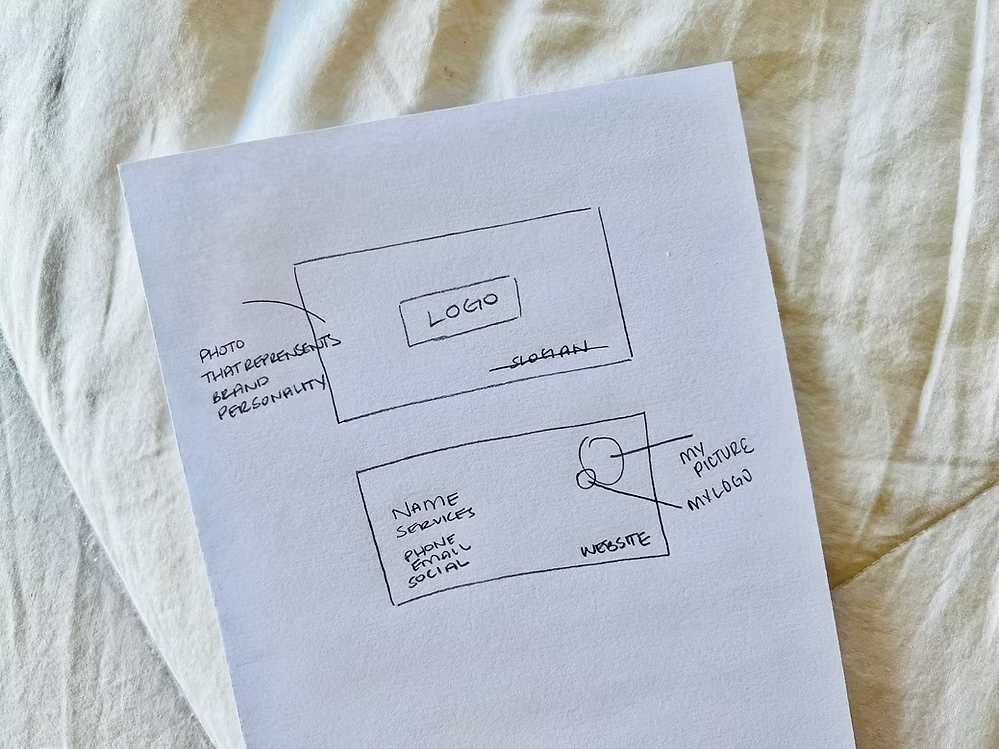 LOGO
SLOGAN
PHOTO
THAT REPRENSENTS
BRAND
PERSONALITY
NAME
SERVICES
PHONE
EMAIL
SOCIAL
WEBSITE
MY
PICTURE
MY LOGO